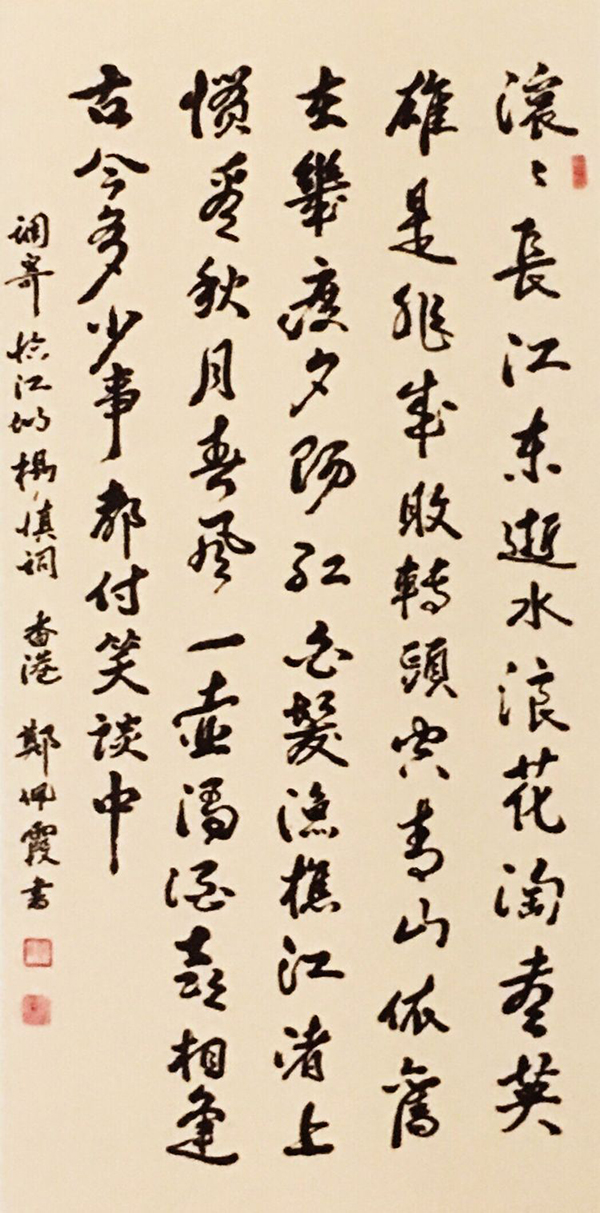 滚〻長江东逝水浪花淘盡英
雄是非成敗轉頭空青山依舊
在幾度夕陽红白髮漁樵江渚上
惯看秋月春風一壶濁酒喜相逢
古今多少事都付笑談中
调寄临江仙楊慎词 香港 鄭佩霞書